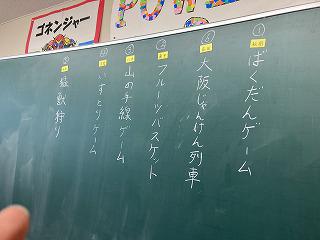 ゴネンジャー
POWE
① ばくだんゲーム
⑥ 大阪じゃんけん列車
② フルーツバスケット
③ 山の手線ゲーム
④ いすとりゲーム
⑤ 猛獣狩り